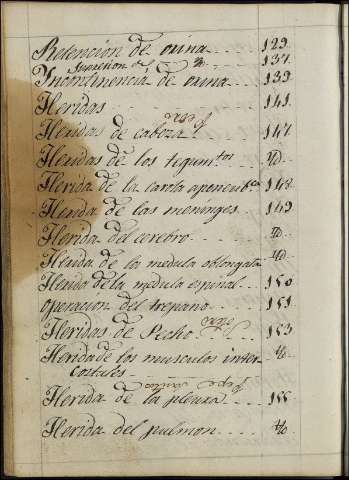 Retencion de orina 129
Inyeccion de 137
Yncontinencia de orina 139
Heridas 141
Heridas de cabeza 147
Heridas de los tegumtos id.
Herida de la carota aponeubca 148
Herida de las meninges 149
Herida del cerebro id.
Herida de la medula oblongata id.
Herida de la medula espinal 150
operacion del trepano 151
Heridas de Pecho 153
Herida de los musculos inter id.
costales
Herida de la pleura 155
Herida del pulmon id.